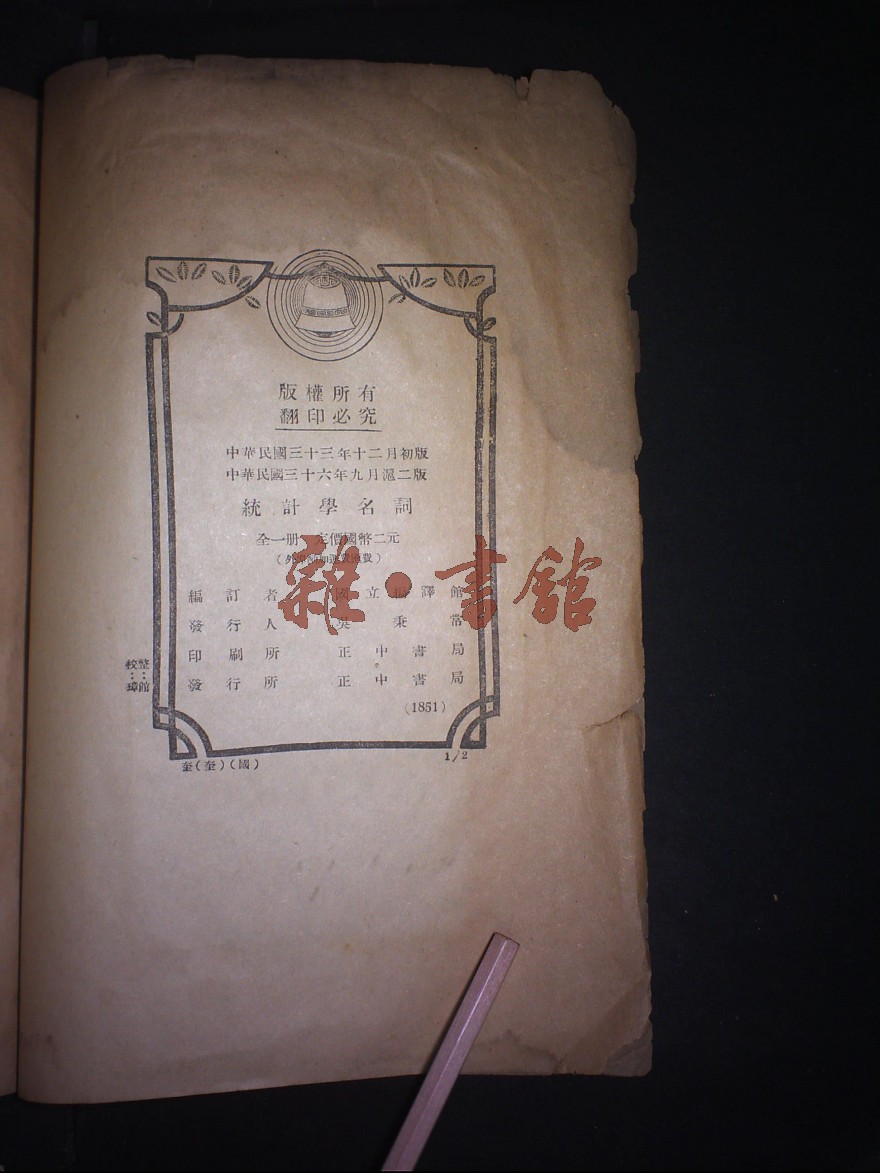 版權所有
翻印必究
中華民國三十三年十二月初版
中華民國三十六年九月滬二版
統計學名詞
全一册 定價國幣二元
(外埠酌加運費滙費)
編訂者 國立編譯館
發行人 吳秉常
印刷所 正中書局
發行所 正中書局
(1851)
整：館
校：璋
奎(奎)(國)
1/2
雜·書館